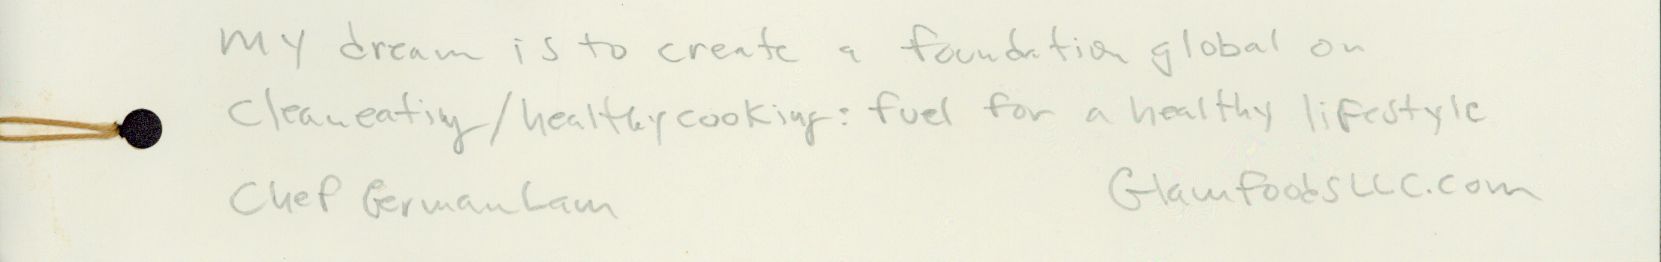 My dream is to create a foundation global on
Clean eating/healthy cooking: fuel for a healthy lifestyle
Chef German Lam GlamfoodsLLC.com